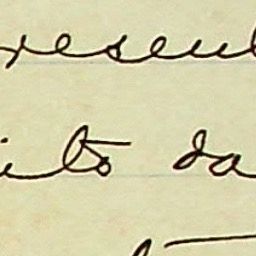 resent
its da